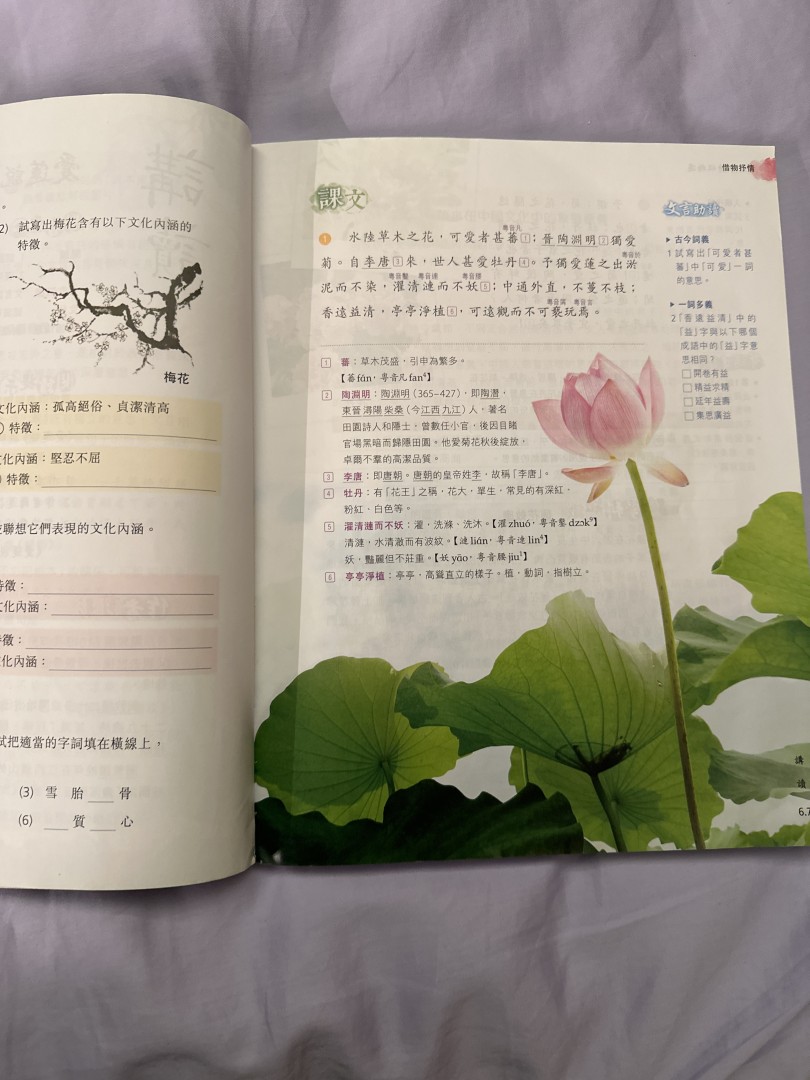 2) 試寫出梅花含有以下文化內涵的
特徵。
梅花
文化內涵：孤高絕俗、貞潔清高
特徵：
文化內涵：堅忍不屈
特徵：
並聯想它們表現的文化內涵。
特徵：
文化內涵：
特徵：
文化內涵：
試把適當的字詞填在橫線上，
(3) 雪 胎 ___ 骨
(6) ___ 質 ___ 心
借物抒情
課文
粵音凡
1 水陸草木之花，可愛者甚蕃1；晉陶淵明2獨愛
粵音於
菊。自李唐3來，世人甚愛牡丹4。予獨愛蓮之出淤
粵音鑿 粵音連 粵音腰
泥而不染，濯清漣而不妖5；中通外直，不蔓不枝；
香遠益清，亭亭淨植6，可遠觀而不可褻玩焉。
1 蕃：草木茂盛，引申為繁多。
【蕃fán，粵音凡fan⁴】
2 陶淵明：陶淵明（365-427），即陶潛，
東晉潯陽柴桑（今江西九江）人，著名
田園詩人和隱士，曾數任小官，後因目睹
官場黑暗而歸隱田園。他愛菊花秋後綻放，
卓爾不羣的高潔品質。
3 李唐：即唐朝。唐朝的皇帝姓李，故稱「李唐」。
4 牡丹：有「花王」之稱，花大，單生，常見的有深紅、
粉紅、白色等。
5 濯清漣而不妖：濯，洗滌、洗沐。【濯zhuó，粵音鑿dzɔk⁹】
清漣，水清澈而有波紋。【漣lián，粵音連lin⁴】
妖，豔麗但不莊重。【妖yāo，粵音腰jiu¹】
6 亭亭淨植：亭亭，高聳直立的樣子。植，動詞，指樹立。
文言動讀
古今詞義
1 試寫出「可愛者甚
蕃」中「可愛」一詞
的意思。
一詞多義
2「香遠益清」中的
「益」字與以下哪個
成語中的「益」字意
思相同？
開卷有益
精益求精
延年益壽
集思廣益
講
讀
6.7